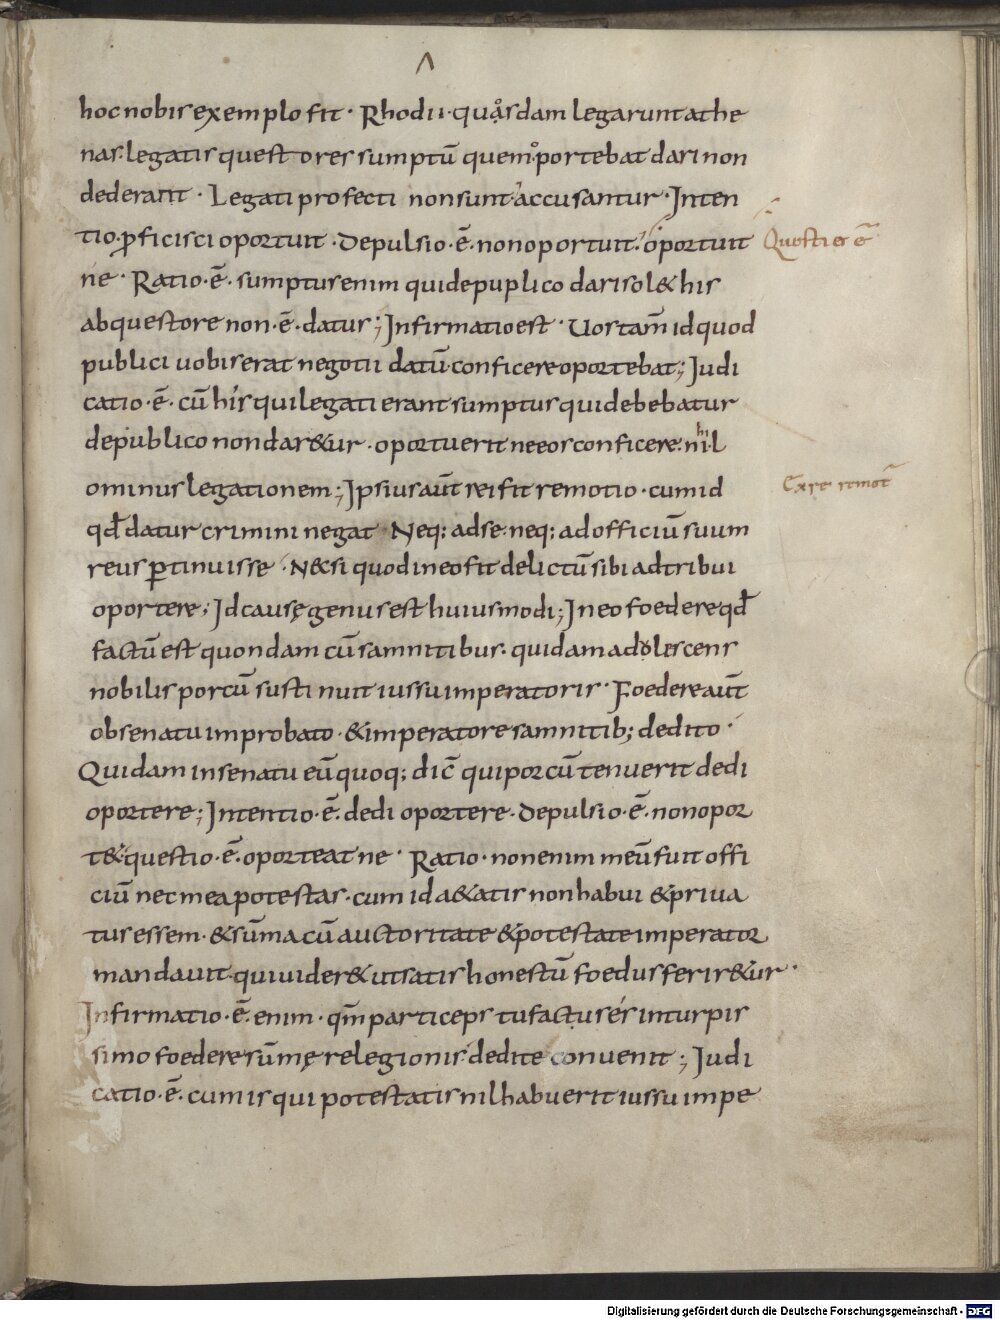 hoc nobis exemplo fit · Rhodii · quosdam legarunt athe
nas · legatis questores sumptū quem oportebat dari non
dederant · Legati profecti non sunt · accusantur · Inten
tio · ꝓficisci oportuit · Depulsio · ē · non oportuit · oportuit
Questio ē
ne · Ratio · ē · sumptus enim qui de puplico dari sol& his
ab questore non · ē · datur ; Infirmatio est · Uos tam̄ id quod
publici uobis erat negotii datū conficere oportebat ; Judi
catio · ē · cū his qui legati erant sumptus qui debebatur
de publico non dar&ur · oportuerit ne eos conficere · nihil
ominus legationem ; Ipsius aūt rei fit remotio · cum id
Ex re remot
qđ datur crimini negat Neq; ad se · neq; ad officiū suum
reus ꝑtinuisse · N& si quod in eo fit delictū sibi adtribui
oportere ; Id causę genus est huiusmodi ; In eo foedere qđ
factū est quondam cū samnitibus · quidam adolescens
nobilis porcū sustinuit iussu imperatoris · Foedere aūt
ob senatu improbato · & imperatore samnitib; dedito ·
Quidam in senatu eū quoq; dic̄ qui porcū tenuerit dedi
oportere ; Intentio · ē · dedi oportere · Depulsio · ē · non opor
t& · questio · ē · oporteat ne · Ratio · non enim meū fuit offi
ciū nec mea potestas · cum id a&atis non habui & priua
tus essem · & sūma cū auctoritate & potestate imperator
mandauit · qui uider& ut satis honestū foedus ferir&ur ·
Infirmatio · ē · enim · qm̄ particeps tu factus es in turpis
simo foedere sūmę relegionis dedite conuenit ; Judi
catio · ē · cum is qui potestatis nil habuerit iussu impe
Digitalisierung gefördert durch die Deutsche Forschungsgemeinschaft - DFG